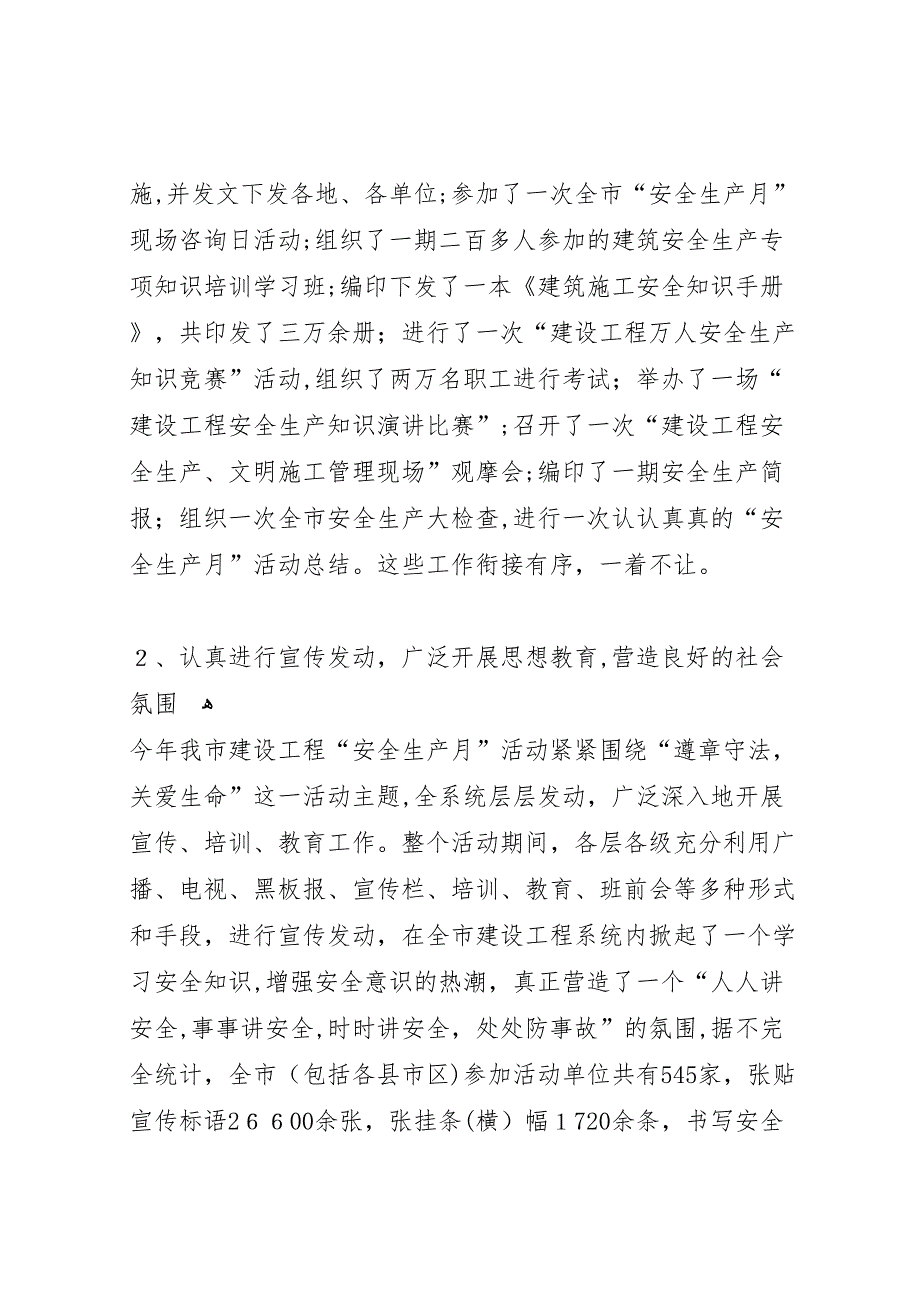 施,并发文下发各地、各单位;参加了一次全市“安全生产月”
现场咨询日活动;组织了一期二百多人参加的建筑安全生产专
项知识培训学习班;编印下发了一本《建筑施工安全知识手册
》，共印发了三万余册；进行了一次“建设工程万人安全生产
知识竞赛”活动,组织了两万名职工进行考试；举办了一场“
建设工程安全生产知识演讲比赛”;召开了一次“建设工程安
全生产、文明施工管理现场”观摩会;编印了一期安全生产简
报；组织一次全市安全生产大检查,进行一次认认真真的“安
全生产月”活动总结。这些工作衔接有序，一着不让。
２、认真进行宣传发动，广泛开展思想教育,营造良好的社会
氛围 ﻫ
今年我市建设工程“安全生产月”活动紧紧围绕“遵章守法，
关爱生命”这一活动主题,全系统层层发动，广泛深入地开展
宣传、培训、教育工作。整个活动期间，各层各级充分利用广
播、电视、黑板报、宣传栏、培训、教育、班前会等多种形式
和手段，进行宣传发动，在全市建设工程系统内掀起了一个学
习安全知识,增强安全意识的热潮，真正营造了一个“人人讲
安全,事事讲安全,时时讲安全，处处防事故”的氛围,据不完
全统计，全市（包括各县市区)参加活动单位共有545家，张贴
宣传标语2６６00余张，张挂条(横）幅１720余条，书写安全